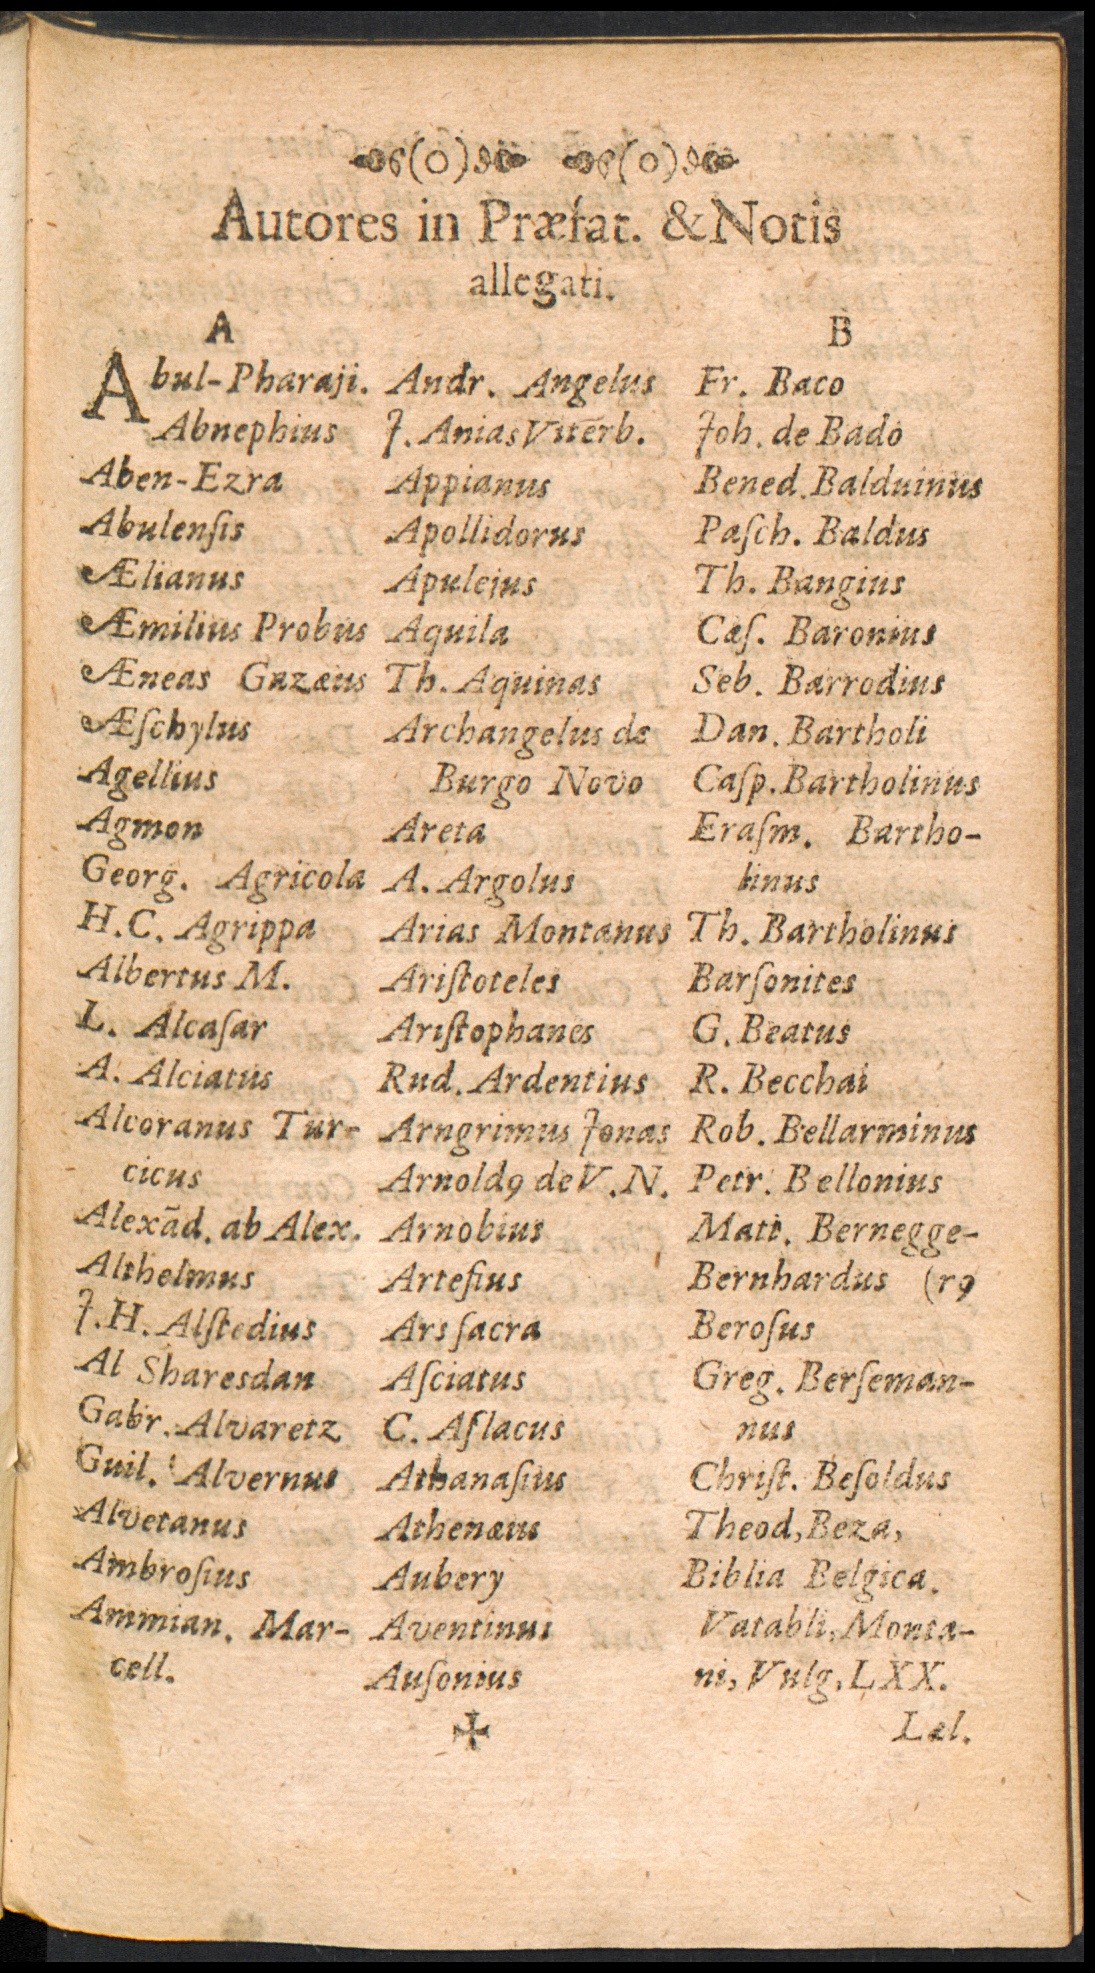 (o) (o)
Autores in Præfat. & Notis
allegati.
A
Abul-Pharaji.
Abnephius
Aben-Ezra
Abulenſis
Ælianus
Æmilius Probus
Æneas Gazæus
Æſchylus
Agellius
Agmon
Georg. Agricola
H.C. Agrippa
Albertus M.
L. Alcaſar
A. Alciatus
Alcoranus Tur-
cicus
Alexãd. ab Alex.
Althelmus
J.H. Alſtedius
Al Sharesdan
Gabr. Alvaretz
Guil. Alvernus
Alvetanus
Ambroſius
Ammian. Mar-
cell.
Andr. Angelus
J. Anias Vitērb.
Appianus
Apollidorus
Apulejus
Aquila
Th. Aquinas
Archangelus de
Burgo Novo
Areta
A. Argolus
Arias Montanus
Ariſtoteles
Ariſtophanes
Rud. Ardentius
Arngrimus Jonas
Arnoldꝯ de V. N.
Arnobius
Arteſius
Ars ſacra
Aſciatus
C. Aſlacus
Athanaſius
Athenæus
Aubery
Aventinus
Auſonius
B
Fr. Baco
Joh. de Bado
Bened. Balduinus
Paſch. Baldus
Th. Bangius
Cæſ. Baronius
Seb. Barrodius
Dan. Bartholi
Caſp. Bartholinus
Eraſm. Bartho-
linus
Th. Bartholinus
Barſonites
G. Beatus
R. Becchai
Rob. Bellarminus
Petr. Bellonius
Matt. Bernegge-
Bernhardus (rꝯ
Beroſus
Greg. Berſeman-
nus
Chriſt. Beſoldus
Theod, Beza,
Biblia Belgica.
Vatabli, Monta-
ni, Vulg, LXX.
Læl.